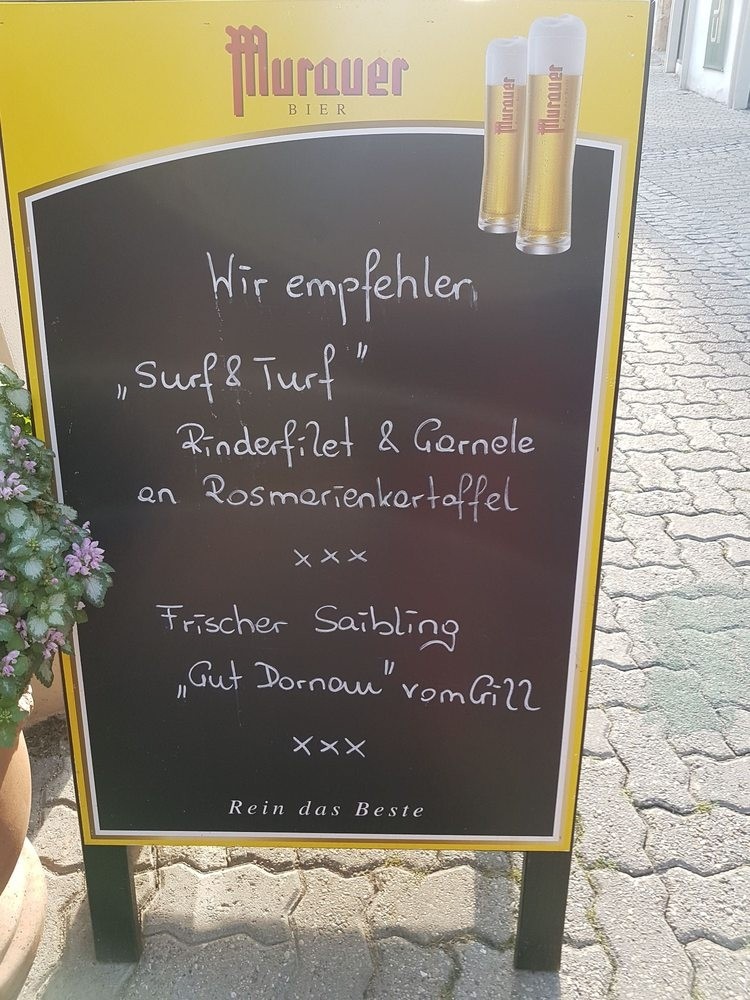 Murauer
BIER
Murauer
Murauer
Wir empfehlen
„Surf & Turf"
Rinderfilet & Garnele
an Rosmarienkartoffel
xxx
Frischer Saibling
„Gut Dornau" vom Grill
xxx
Rein das Beste